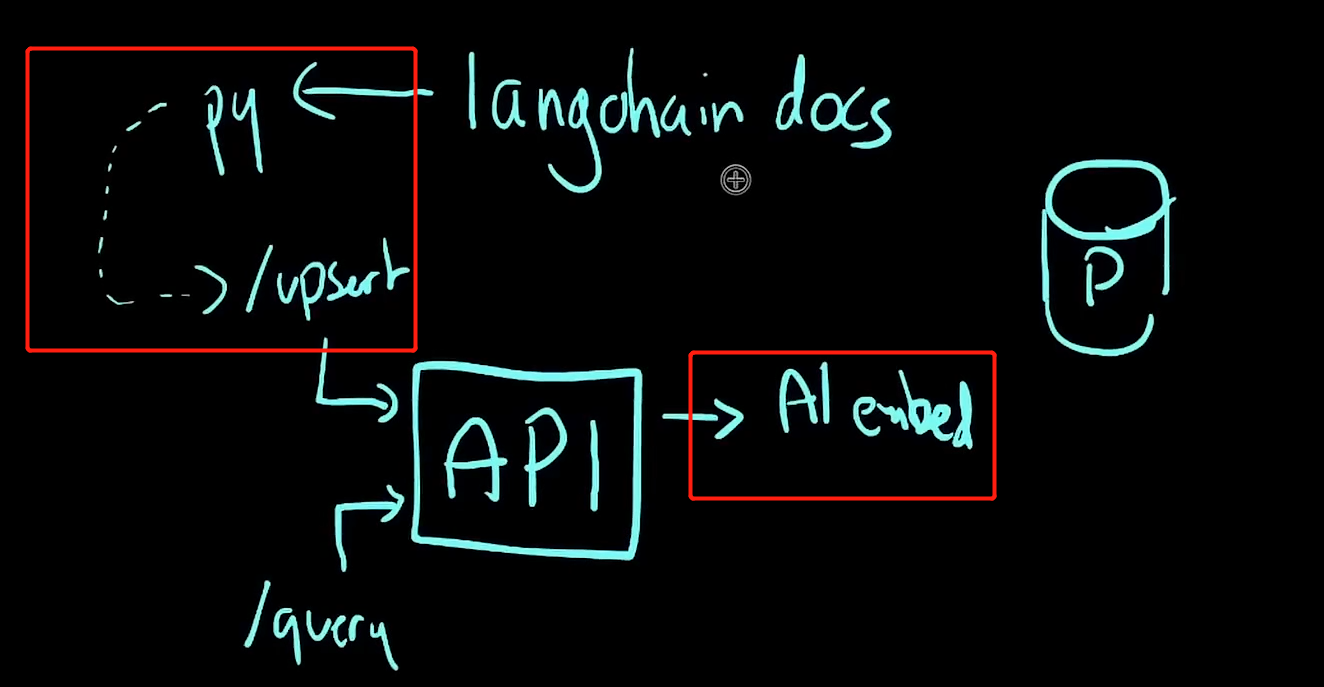 py
langchain docs
/upsert
P
API
AI embed
/query